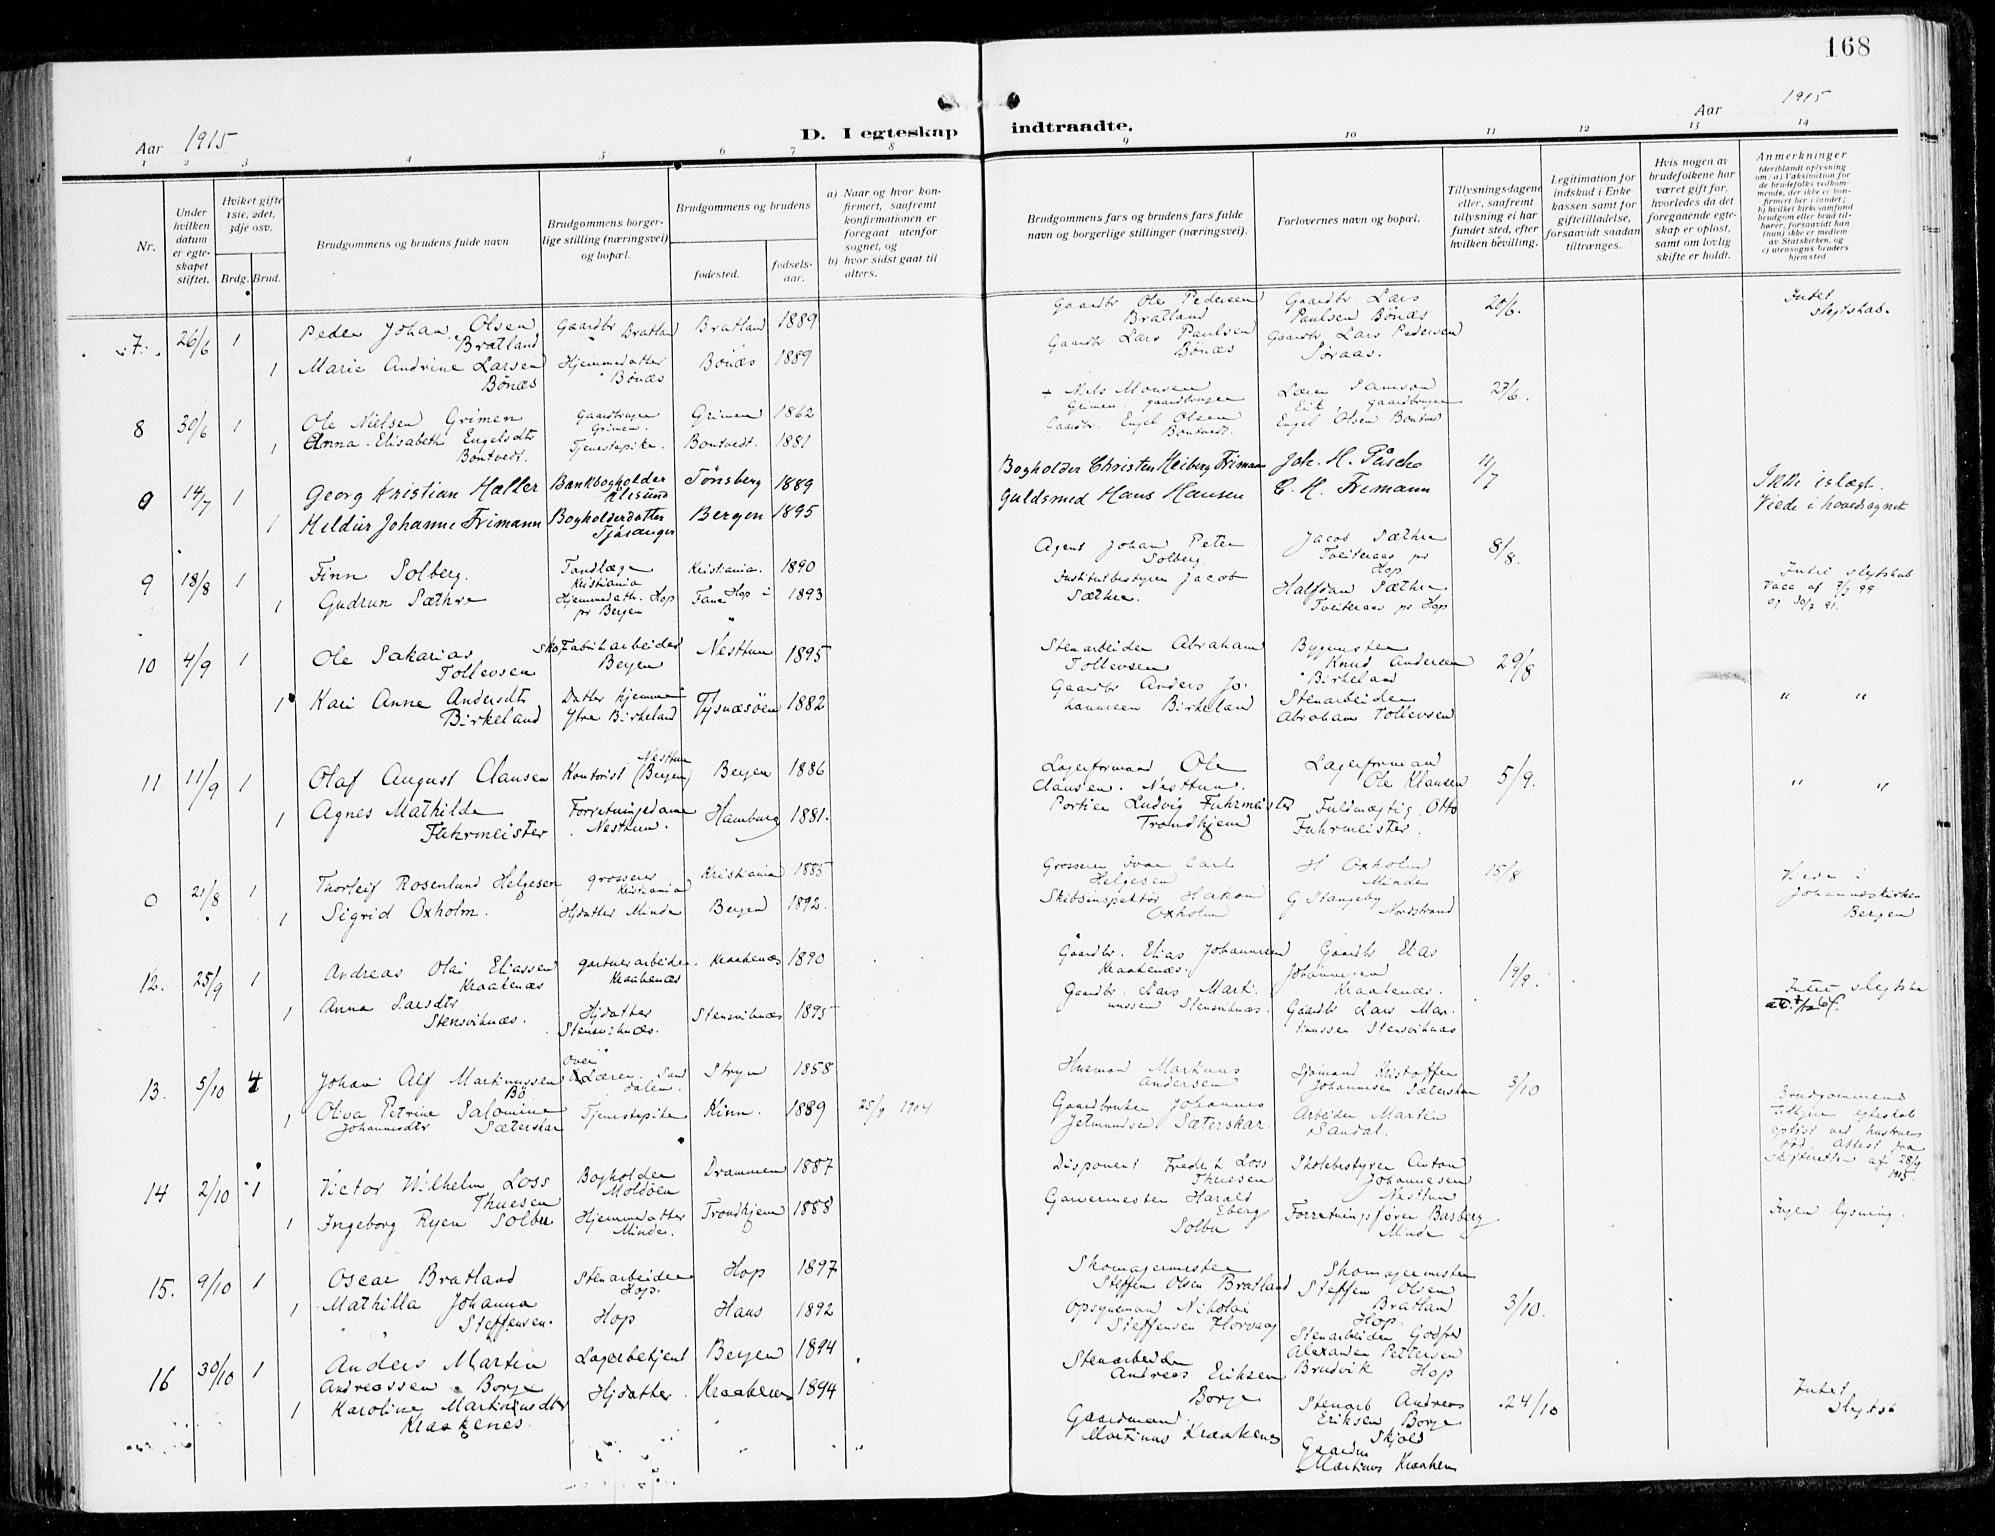 168
Aar 1915
D. I egteskap indtraadte.
Aar 1915
1 2 3 4 5 6 7 8 9 10 11 12 13 14
Nr.
Under hvilken datum er egteskapet stiftet.
Hvilket gifte 1ste, 2det, 3dje osv.
Brdg. Brud.
Brudgommens og brudens fulde navn
Brudgommens borgerlige stilling (næringsvei) og bopæl.
Brudgommens og brudens
fødested.
fødselsaar.
a) Naar og hvor konfirmert, saafremt konfirmationen er foregaat utenfor sognet, og
b) hvor sidst gaat til alters.
Brudgommens fars og brudens fars fulde navn og borgerlige stillinger (næringsvei).
Forlovernes navn og bopæl.
Tillysningsdagene eller, saafremt tillysning ei har fundet sted, efter hvilken bevilling.
Legitimation for indskud i Enkekassen samt for giftetilladelse, forsaavidt saadan tiltrænges.
Hvis nogen av brudefolkene har været gift før, hvorledes da det foregaaende egteskap er opløst, samt om lovlig skifte er holdt.
Anmerkninger
7. 26/6 1 Peder Johan Olsen Bratland Gaardbr Bratland Bratland 1889 Gaardbr Ole Pedersen Bratland Gaardbr Lars Paulsen Bönæs 20/6. Intet slegtskab.
1 Marie Andrine Larsen Bönæs Hjemmedatter Bönæs Bönæs 1889 Gaardbr Lars Paulsen Bönæs Gaardbr Lars Pedersen Söraas.
8 30/6 1 Ole Nielsen Grimen Gaardbruger Grimen. Grimen 1862 + Niels Monsen Grimen gaardbruger 27/6.
1 Anna Elisabeth Engelsdtr Bontvedt. Tjenestepike. Bontvedt. 1881 Gaardbr. Engel Olsen Bontvedt. Engel Olsen Bontvedt
0 14/7 1 Georg Kristian Haller Bankbogholder Ålesund Tønsberg 1889 Bogholder Christen Heiberg Frimann Joh. H. Påsche 11/7 Ikke i slægt.
1 Hildur Johanne Frimann Bogholderdatter Tjøsanger Bergen 1895 Guldsmed Hans Hansen C. H. Frimann Viede i hovedsognet
9 18/8 1 Finn Solberg. Tandlæge Kristiania Kristiania. 1890 Agent Johan Peter Solberg Jacob Sæthre Tveiteraas pr Hop 8/8.
1 Gudrun Sæthre Hjemmedatt. Hop pr Bergen Hop i Fana 1893 Institutbestyrer Jacob Sæthre. Halfdan Sæthre Tveiteraas pr Hop Intet slegtskab
10 4/9 1 Ole Sakarias Tollevsen Skofabrikarbeider Bergen Nesttun 1895 Stenarbeider Abraham Tollevsen Bygmester Knud Andersen Birkeland 29/8
1 Kari Anna Andersdtr Birkeland Datter hjemme Ytre Birkeland Tysnæsöen 1882 Gaardbr Anders Johannesen Birkeland Stenarbeider Abraham Tollevsen " "
11 11/9 1 Olaf August Clausen Kontorist Nesttun (Bergen) Bergen 1886 Lagerformand Ole Clausen. Nesttun. Lagerformand Ole Klausen 5/9. " "
1 Agnes Mathilde Fuhrmeister Forretningsdame Nesttun. Hamburg 1881. Portier Ludvig Fuhrmeister Trondhjem Fuldmægtig Otto Fuhrmeister.
0 21/8 1 Thorleif Rosenlund Helgesen grosserer Kristiania Kristiania 1885 Grosserer Ivar Carl Helgesen H. Oxholm Minde 15/8 Viede i Johanneskirken Bergen
1 Sigrid Oxholm. Hjdatter Minde Bergen 1892. Skibsinspektør Hakon Oxholm G Stangeby Nordstrand
12. 25/9 1 Andreas Olai Eliassen Kraakenæs gartnerarbeider Kraakenæs Kraakenæs 1890 Gaardbr. Elias Johannesen Kraakenæs. Gaardbr Elias Johannesen Kraakenæs. 19/9. Intet slegtska
1 Anna Larsdtr Stensviknæs. Hjdatter Stensviknæs. Stensviknæs 1895 Gaardbr. Lars Martinussen Stensviknæs. Gaardbr Lars Martinussen Stensviknæs
13. 5/10 4 Johan Alf Martinussen Bö Overlærer. Sandalen. Stryn 1858 Husmand Martinus Andersen Sjömand Kristoffer Johannesen Sæterskar 3/10
1 Oliva Petrine Salomine Johannesdtr Sæterskar Tjenestepike Kinn. 1889 25/9 1904 Gaardbruker Johannes Jetmundsen Sæterskar. Arbeider Martin Sandal. Brudgommens tidligere egteskab opløst ved hustruens død. Attest fra skifteretten af 28/9 1915.
14 2/10 1 Victor Wilhelm Loss Thuesen Bogholder Moldöen Drammen 1887 Disponent Fredrik Loss Thuesen Skolebestyrer Anton Johannesen Nesttun
1 Ingeborg Ryen Solbu Hjemmedatter Minde. Trondhjem 1888 Garvermester Harald Eberg Solbu Forretningsfører Basberg Minde Ingen lysning.
15. 9/10 1 Oscar Bratland Stenarbeider Hop. Hop 1897 Skomagermester Steffen Olsen Bratland Skomagermester Steffen Olsen Bratland Hop. 3/10.
1 Mathilla Johanna Steffensen. Hop Haus 1892 Opsynsmand Nikolai Steffensen Stenarbeider Godfred Alexander Pettersen Brudvik Hop
16 30/10 1 Anders Martin Andreassen Borge Lagerbetjent Bergen 1894 Stenarbeider Andreas Eriksen Borge Stenarb Andreas Eriksen Borge Skjold 24/10 Intet Slegtsk
1 Karoline Martinusdtr Kraakenes. Hjdatter Kraakenes 1894 Gaardmand Martinus Kraakenes Gaardm Martinus Kraakenes